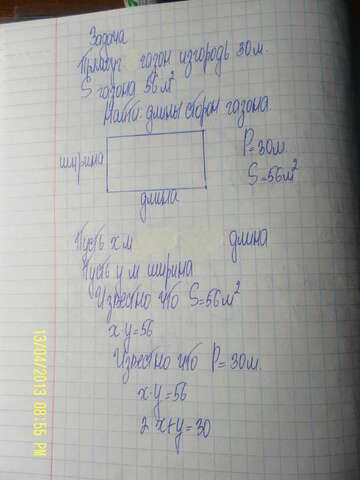 Задача
Прямоуг. газон изгородь 30м.
S газона 56м²
Найти: длины сторон газона.
ширина
P=30м.
S=56м²
длина
Пусть x м длина
Пусть y м ширина
Известно что S=56м²
x·y=56
Известно что P=30м.
x·y=56
2 x+y=30
13/04/2013 08:55 PM